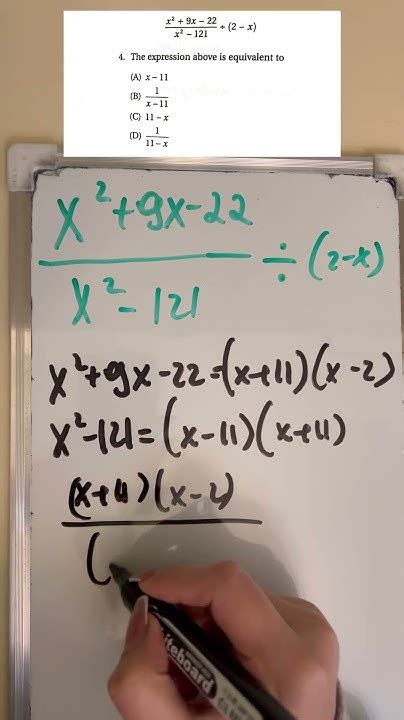 x² + 9x − 22
x² − 121 ÷ (2 − x)
4. The expression above is equivalent to
(A) x − 11
(B) 1/(x − 11)
(C) 11 − x
(D) 1/(11 − x)
x²+9x-22
x²-121 ÷ (2-x)
x²+9x-22=(x+11)(x-2)
x²-121=(x-11)(x+11)
(x+11)(x-2)
(
whiteboard